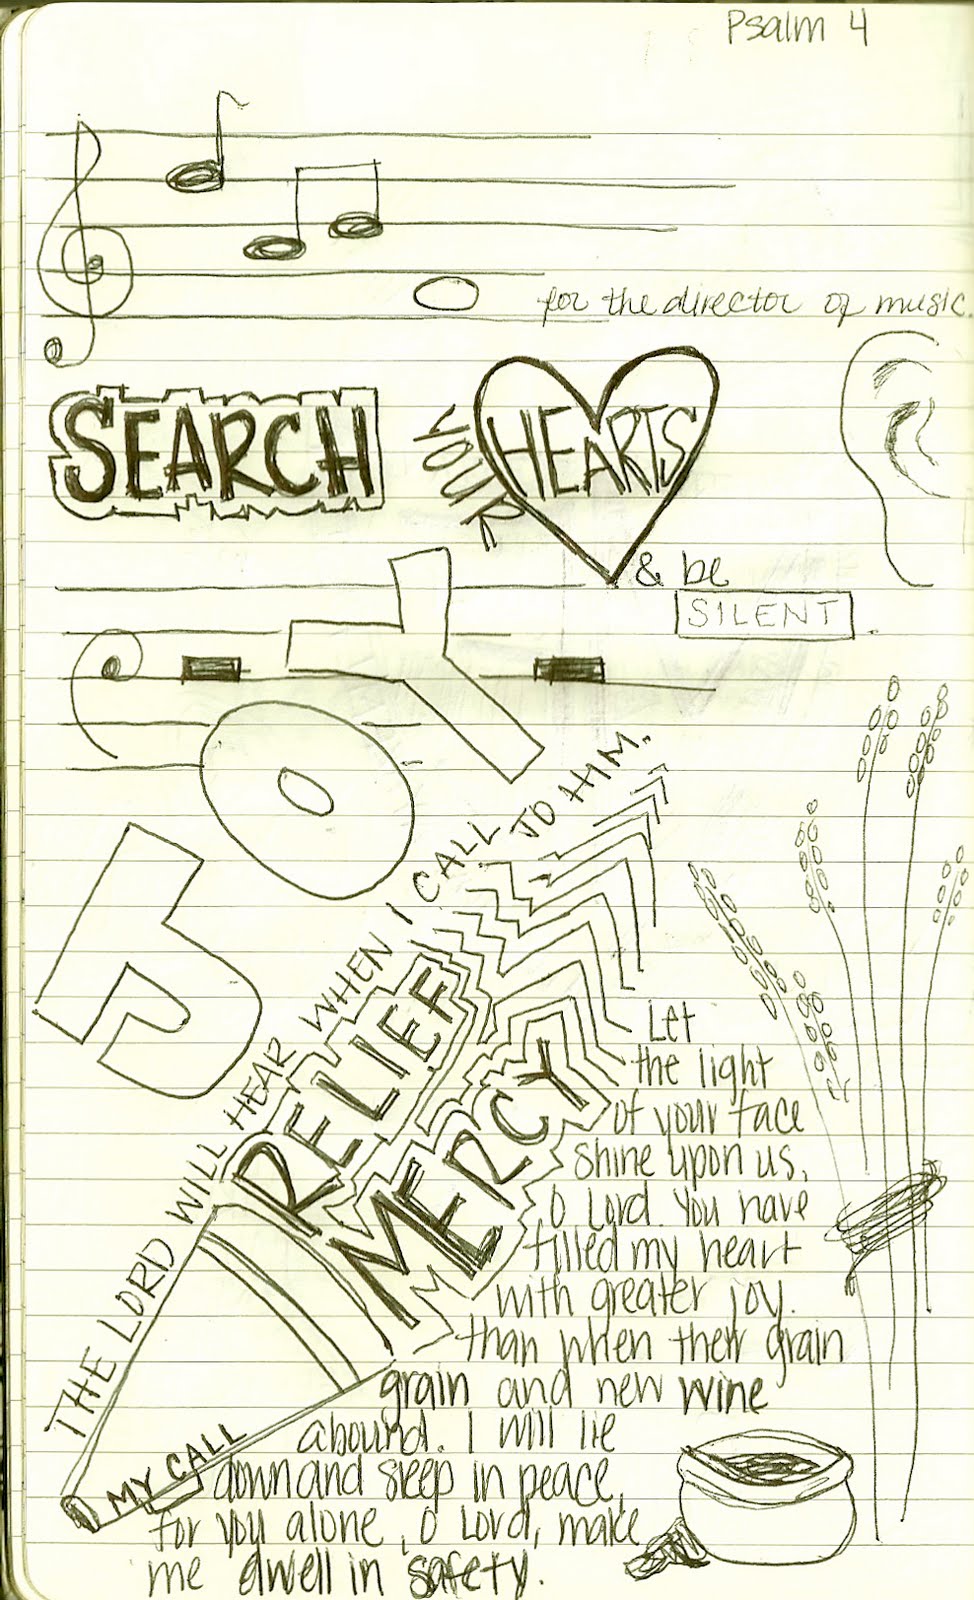 Psalm 4
for the director of music.
SEARCH
YOUR
HEARTS
& be
SILENT.
JOY
THE LORD WILL HEAR WHEN I CALL TO HIM.
RELIEF
MERCY
MY CALL
Let
the light
of your face
shine upon us,
O Lord. You have
filled my heart
with greater joy.
than when their grain
grain and new wine
abound. I will lie
down and sleep in peace,
for you alone, O Lord, make
me dwell in safety.